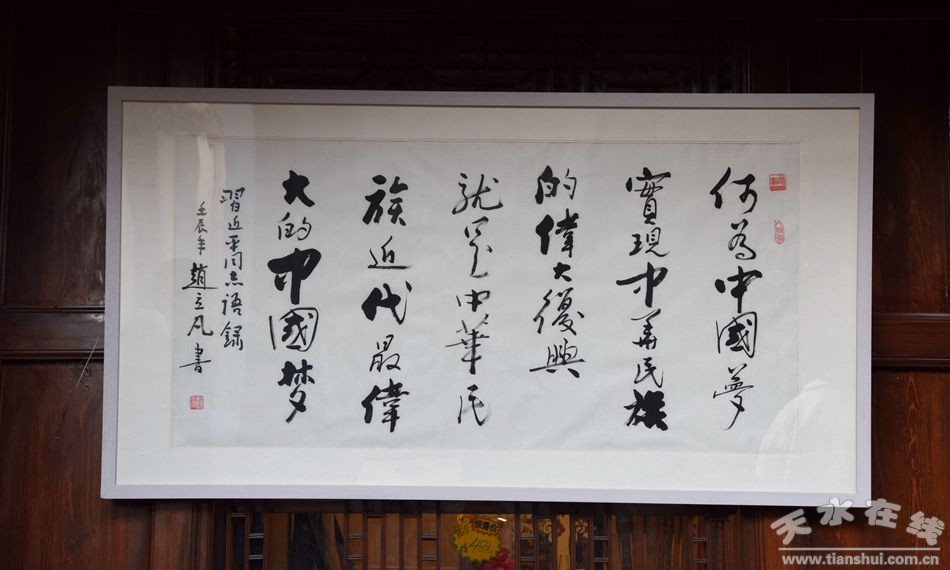 何為中國夢
實現中華民族
的偉大復興
就是中華民
族近代最偉
大的中國梦
習近平同志語録
壬辰年趙立凡書
天水在线
www.tianshui.com.cn